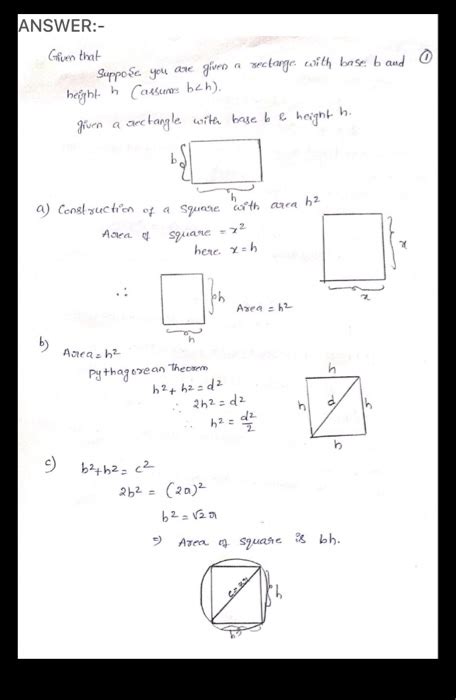 ANSWER:-
Given that
①
Suppose you are given a rectange with base b and
height h (assume b<h).
given a rectangle with base b & height h.
b
h
a) Construction of a square with area h²
Area of square = x²
here x = h
x
x
∴
h
Area = h²
h
b)
Area = h²
pythagorean Theorem
h² + h² = d²
∴ 2h² = d²
∴ h² = d²/2
h
h
d
h
h
c)
b² + h² = c²
2b² = (2a)²
b² = √2 a
⇒ Area of square is bh.
h